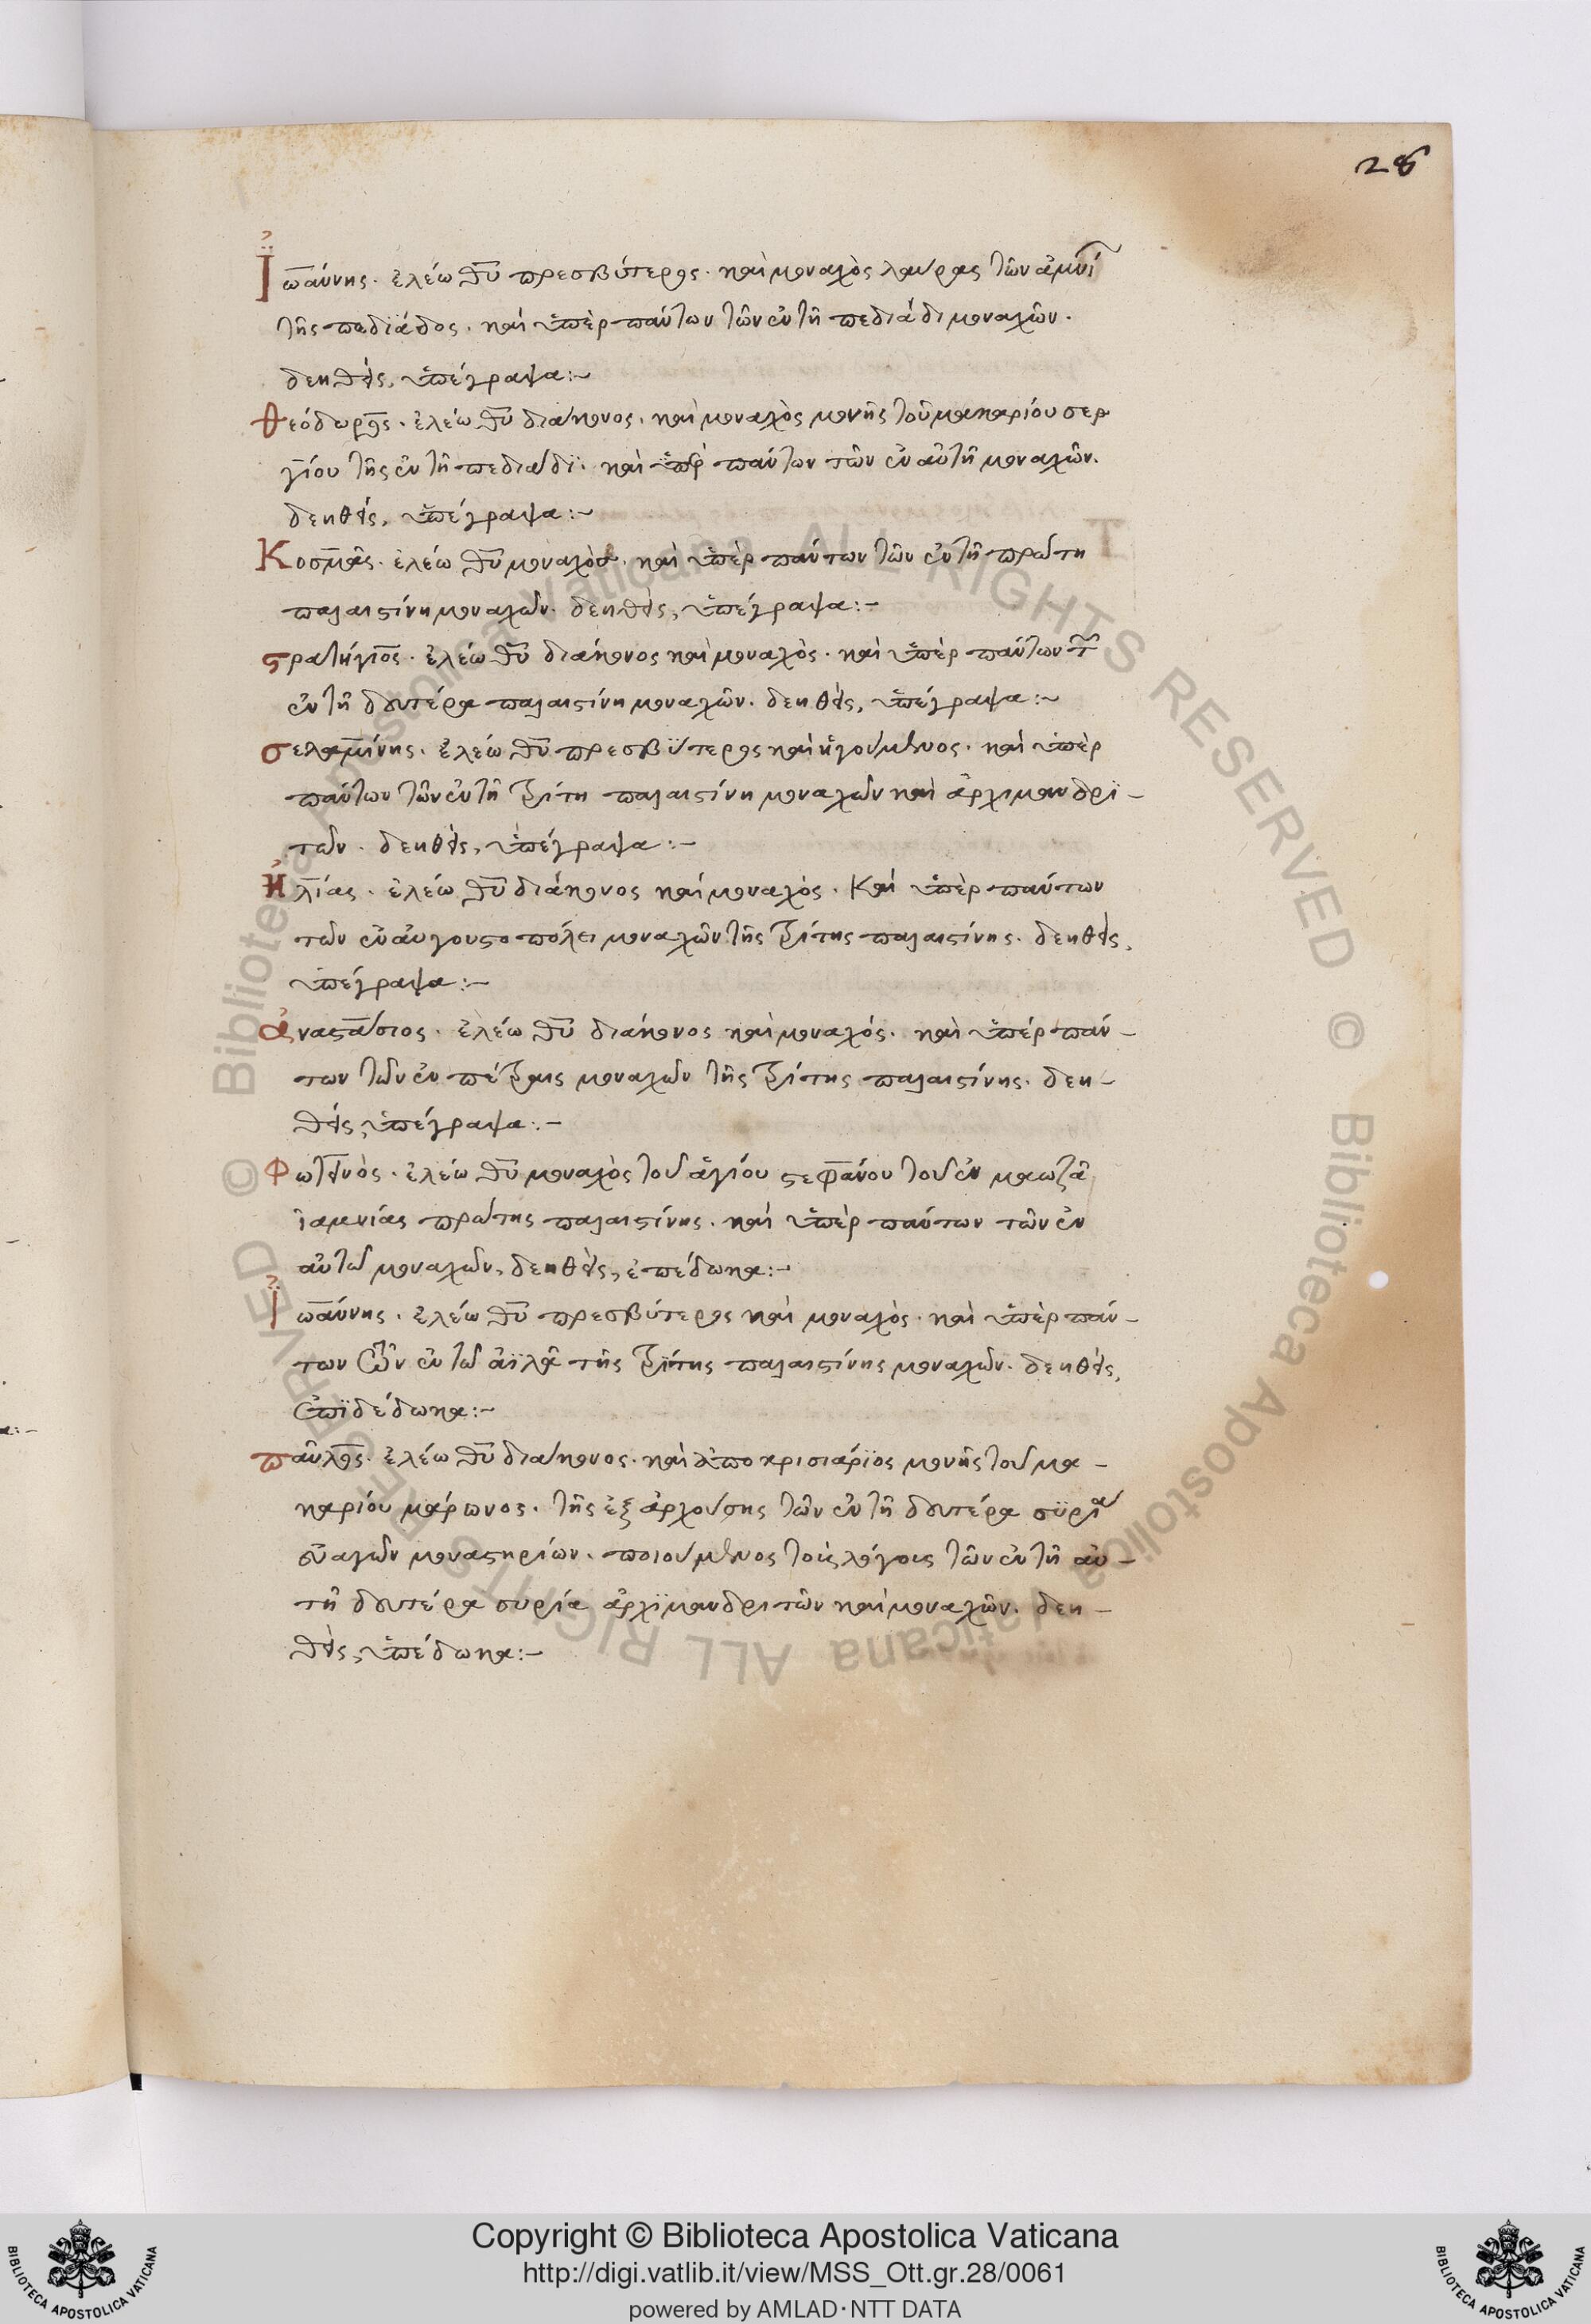 28
Ἰωάννης. ἐλέω θῦ πρεσβύτερος. καὶ μοναχὸς λαύρας τῶν
τῆς πεδϊάδος. καὶ ὑπὲρ πάντων τῶν ἐν τῆ πεδιάδι μοναχῶν.
δεηθεὶς, ὑπέγραψα:~
θεόδωρος. ἐλέω θῦ διάκονος. καὶ μοναχὸς μονῆς τοῦ μακαρίου σερ
γίου τῆς ἐν τῆ πεδιάδϊ. καὶ ὑπὲρ πάντων τῶν ἐν αὐτῆ μοναχῶν.
δεηθεὶς, ὑπέγραψα:~
Κοσμᾶς. ἐλέω θῦ μοναχὸς. καὶ ὑπὲρ πάντων τῶν ἐν τῆ πρώτη
παλαιστίνη μοναχῶν. δεηθεὶς, ὑπέγραψα:~
στρατήγιος. ἐλέω θῦ διάκονος καὶ μοναχὸς. καὶ ὑπὲρ πάντων τῶν
ἐν τῆ δευτέρα παλαιστίνη μοναχῶν. δεηθεὶς, ὑπέγραψα:~
σελαμίνης. ἐλέω θῦ πρεσβΰτερος καὶ ἡγούμενος. καὶ ὑπὲρ
πάντων τῶν ἐν τῆ τρίτη παλαιστίνη μοναχῶν καὶ ἀρχιμανδρϊ-
τῶν. δεηθεὶς, ὑπέγραψα:~
ἠλίας. ἐλέω θῦ διάκονος καὶ μοναχὸς. Καὶ ὑπὲρ πάντων
τῶν ἐν αὐγουστοπόλει μοναχῶν τῆς τρίτης παλαιστίνης. δεηθεὶς,
ὑπέγραψα:~
ἀναστάσιος. ἐλέω θῦ διάκονος καὶ μοναχός. καὶ ὑπὲρ πάν-
των τῶν ἐν πέτραις μοναχῶν τῆς τρίτης παλαιστίνης. δεη-
θεὶς, ὑπέγραψα:~
Φωτεινὸς. ἐλέω θῦ μοναχὸς τοῦ ἁγίου στεφάνου τοῦ ἐν μαωζᾶ
ἰαμνίας πρώτης παλαιστίνης. καὶ ὑπὲρ πάντων τῶν ἐν
αὐτῶ μοναχῶν, δεηθεὶς, ἐπέδωκα:~
Ἰωάννης. ἐλέω θῦ πρεσβύτερος καὶ μοναχὸς. καὶ ὑπὲρ πάν-
των τῶν ἐν τῶ ἀϊλᾶ τῆς τρίτης παλαιστίνης μοναχῶν. δεηθεὶς,
ἐπϊδέδωκα:~
παῦλος. ἐλέω θῦ διάκονος. καὶ ἀποκρισιάρϊος μονῆς τοῦ μα-
καρίου μάρωνος. τῆς ἐξαρχούσης τῶν ἐν τῆ δευτέρα σϋρία
εὐαγῶν μοναστηρίων. ποιούμενος τοὺς λόγους τῶν ἐν τῆ αὐ-
τῆ δευτέρα συρία ἀρχϊμανδριτῶν καὶ μοναχῶν. δεη-
θεὶς, ὑπέδωκα:~
Copyright © Biblioteca Apostolica Vaticana
http://digi.vatlib.it/view/MSS_Ott.gr.28/0061
powered by AMLAD·NTT DATA